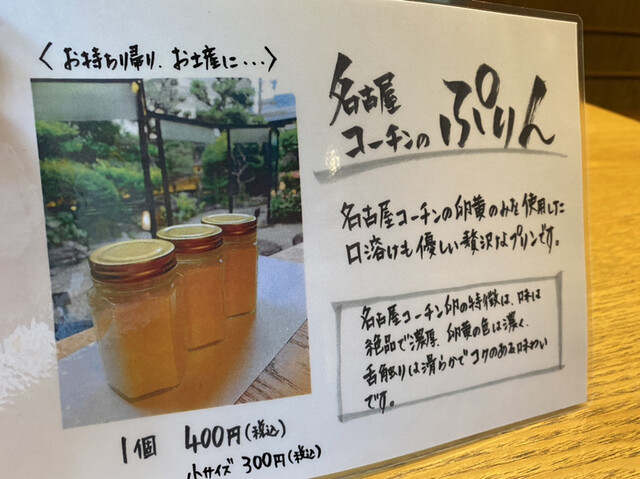 〈お持ち帰り、お土産に・・・〉
名古屋
コーチンの ぷりん
名古屋コーチンの卵黄のみを使用した
口溶けも優しい贅沢なプリンです。
名古屋コーチン卵の特徴は、味は
絶品で濃厚、卵黄の色は濃く、
舌触りは滑らかでコクのある味わい
です。
1個 400円(税込)
小サイズ 300円(税込)